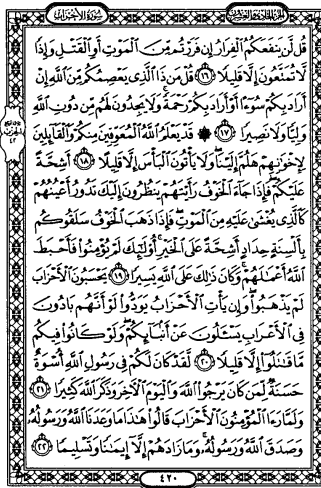 الجزء الحادي والعشرون
سورة الأحزاب
قُل لَّن يَنفَعَكُمُ ٱلْفِرَارُ إِن فَرَرْتُم مِّنَ ٱلْمَوْتِ أَوِ ٱلْقَتْلِ وَإِذًا
لَّا تُمَتَّعُونَ إِلَّا قَلِيلًا ١٦ قُلْ مَن ذَا ٱلَّذِى يَعْصِمُكُم مِّنَ ٱللَّهِ إِنْ
أَرَادَ بِكُمْ سُوٓءًا أَوْ أَرَادَ بِكُمْ رَحْمَةً ۚ وَلَا يَجِدُونَ لَهُم مِّن دُونِ ٱللَّهِ
وَلِيًّا وَلَا نَصِيرًا ١٧ ۞ قَدْ يَعْلَمُ ٱللَّهُ ٱلْمُعَوِّقِينَ مِنكُمْ وَٱلْقَآئِلِينَ
لِإِخْوَٰنِهِمْ هَلُمَّ إِلَيْنَا ۖ وَلَا يَأْتُونَ ٱلْبَأْسَ إِلَّا قَلِيلًا ١٨ أَشِحَّةً
عَلَيْكُمْ ۖ فَإِذَا جَآءَ ٱلْخَوْفُ رَأَيْتَهُمْ يَنظُرُونَ إِلَيْكَ تَدُورُ أَعْيُنُهُمْ
كَٱلَّذِى يُغْشَىٰ عَلَيْهِ مِنَ ٱلْمَوْتِ ۖ فَإِذَا ذَهَبَ ٱلْخَوْفُ سَلَقُوكُم
بِأَلْسِنَةٍ حِدَادٍ أَشِحَّةً عَلَى ٱلْخَيْرِ ۚ أُو۟لَٰٓئِكَ لَمْ يُؤْمِنُوا۟ فَأَحْبَطَ
ٱللَّهُ أَعْمَٰلَهُمْ ۚ وَكَانَ ذَٰلِكَ عَلَى ٱللَّهِ يَسِيرًا ١٩ يَحْسَبُونَ ٱلْأَحْزَابَ
لَمْ يَذْهَبُوا۟ ۖ وَإِن يَأْتِ ٱلْأَحْزَابُ يَوَدُّوا۟ لَوْ أَنَّهُم بَادُونَ
فِى ٱلْأَعْرَابِ يَسْـَٔلُونَ عَنْ أَنۢبَآئِكُمْ ۖ وَلَوْ كَانُوا۟ فِيكُم
مَّا قَٰتَلُوٓا۟ إِلَّا قَلِيلًا ٢٠ لَّقَدْ كَانَ لَكُمْ فِى رَسُولِ ٱللَّهِ أُسْوَةٌ
حَسَنَةٌ لِّمَن كَانَ يَرْجُوا۟ ٱللَّهَ وَٱلْيَوْمَ ٱلْـَٔاخِرَ وَذَكَرَ ٱللَّهَ كَثِيرًا ٢١
وَلَمَّا رَءَا ٱلْمُؤْمِنُونَ ٱلْأَحْزَابَ قَالُوا۟ هَٰذَا مَا وَعَدَنَا ٱللَّهُ وَرَسُولُهُۥ
وَصَدَقَ ٱللَّهُ وَرَسُولُهُۥ ۚ وَمَا زَادَهُمْ إِلَّآ إِيمَٰنًا وَتَسْلِيمًا ٢٢
٤٢٠